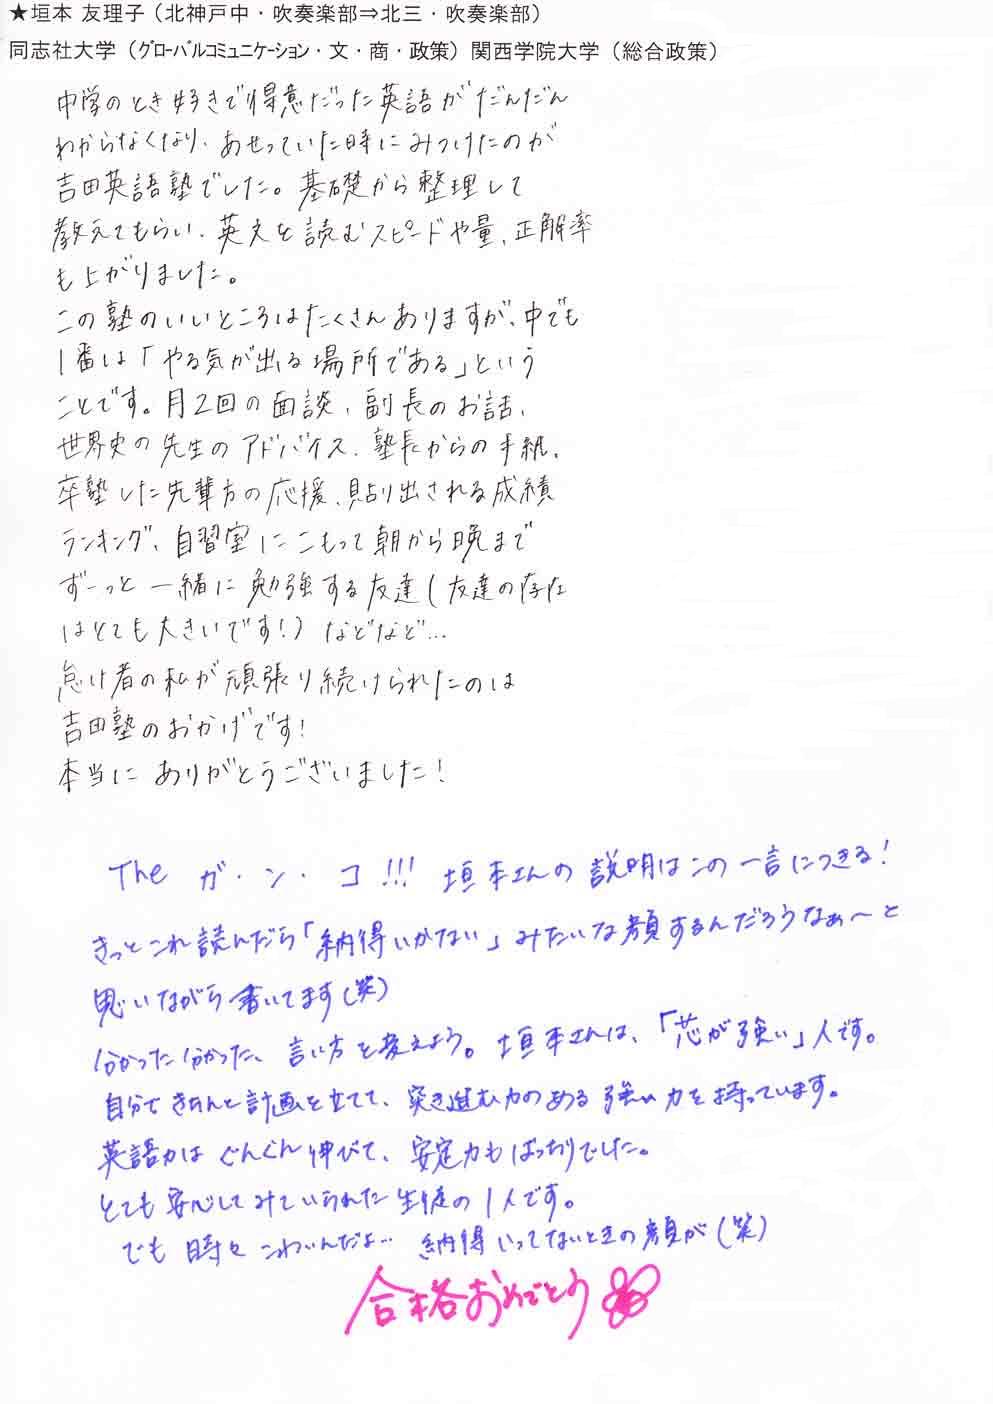 ★垣本 友理子（北神戸中・吹奏楽部⇒北三・吹奏楽部）
同志社大学（ｸﾞﾛｰﾊﾞﾙｺﾐｭﾆｹｰｼｮﾝ・文・商・政策）関西学院大学（総合政策）
中学のとき好きで得意だった英語がだんだん
わからなくなり、あせっていた時にみつけたのが
吉田英語塾でした。基礎から整理して
教えてもらい、英文を読むスピードや量、正解率
も上がりました。
この塾のいいところはたくさんありますが、中でも
1番は「やる気が出る場所である」という
ことです。月2回の面談、副長のお話、
世界史の先生のアドバイス、塾長からの手紙、
卒塾した先輩方の応援、貼り出される成績
ランキング、自習室にこもって朝から晩まで
ずーっと一緒に勉強する友達（友達の存在
はとても大きいです！）などなど…
怠け者の私が頑張り続けられたのは
吉田塾のおかげです！
本当にありがとうございました！
The ガ・ン・コ!!! 垣本さんの説明はこの一言につきる！
きっとこれ読んだら「納得いかない」みたいな顔するんだろうなぁ〜と
思いながら書いてます（笑）
分かった分かった、言い方を変えよう。垣本さんは、「芯が強い」人です。
自分できちんと計画を立てて、突き進む力のある強い力を持っています。
英語力はぐんぐん伸びて、安定力もばっちりでした。
とても安心してみていられた生徒の1人です。
でも時々こわいんだよ… 納得いってないときの顔が（笑）
合格おめでとう